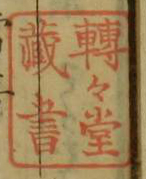 轉々堂
藏書